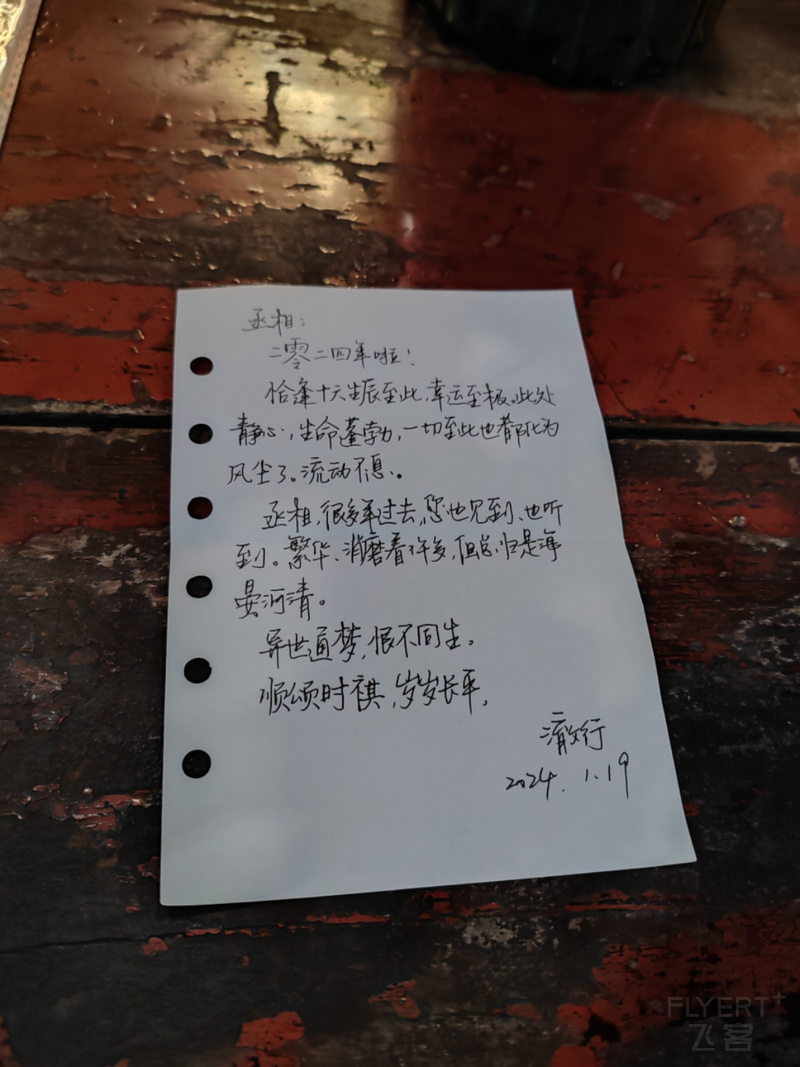 丞相：
二零二四年啦！
恰逢十六生辰至此，幸运至极。此处
静心，生命蓬勃，一切至此也都化为
风尘了。流动不息。
丞相，很多年过去，您也见到、也听
到。繁华、消磨着许多，但总归是海
晏河清。
异世通梦，恨不同生。
顺颂时祺，岁岁长平。
澈行
2024.1.19
FLYERT
飞客